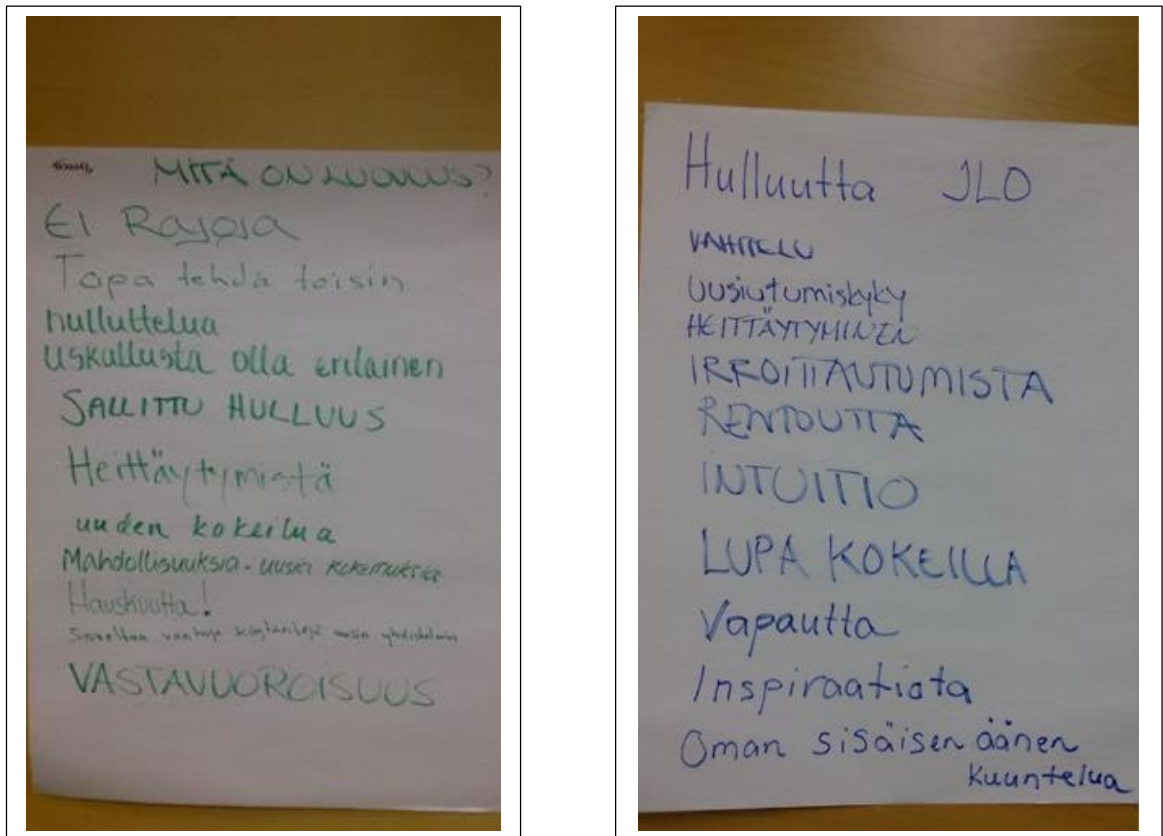 MITÄ ON LUOVUUS?
EI Rajoja
Tapa tehdä toisin
hulluttelua
uskallusta olla erilainen
SALLITTU HULLUUS
Heittäytymistä
uuden kokeilua
Mahdollisuuksia - uusia kokemuksia
Hauskuutta!
VASTAVUOROISUUS
Hulluutta ILO
VAIHTELU
Uusiutumiskyky
HEITTÄYTYMINEN
IRROITTAUTUMISTA
RENTOUTTA
INTUITIO
LUPA KOKEILLA
Vapautta
Inspiraatiota
Oman sisäisen äänen
kuuntelua